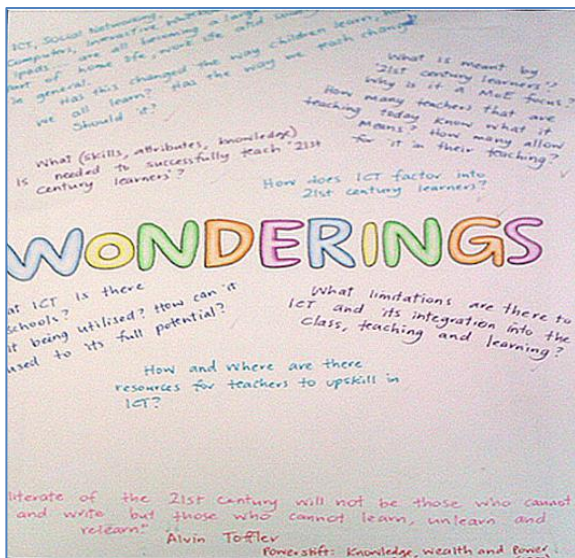 ICT, Social Networking,
Computers, Interactive
ipads - are all becoming a large
part of home life, work life and
in general.
Has this changed the way children learn, how
we all learn? Has the way we teach changed
Should it?
What is meant by
'21st century learners'?
Why is it a MoE focus?
How many teachers that are
teaching today know what it
Means? How many allow
for it in their teaching?
What (skills, attributes, knowledge)
is needed to successfully teach '21st
century learners'?
How does ICT factor into
21st century learners?
WONDERINGS
at ICT is there
schools?
it being utilised? How can it
used to its full potential?
What limitations are there to
ICT and its integration into the
class, teaching and learning?
How and where are there
resources for teachers to upskill in
ICT?
literate of the 21st Century will not be those who cannot
and write but those who cannot learn, unlearn and
relearn."
Alvin Toffler
Powershift: Knowledge, Wealth and Power